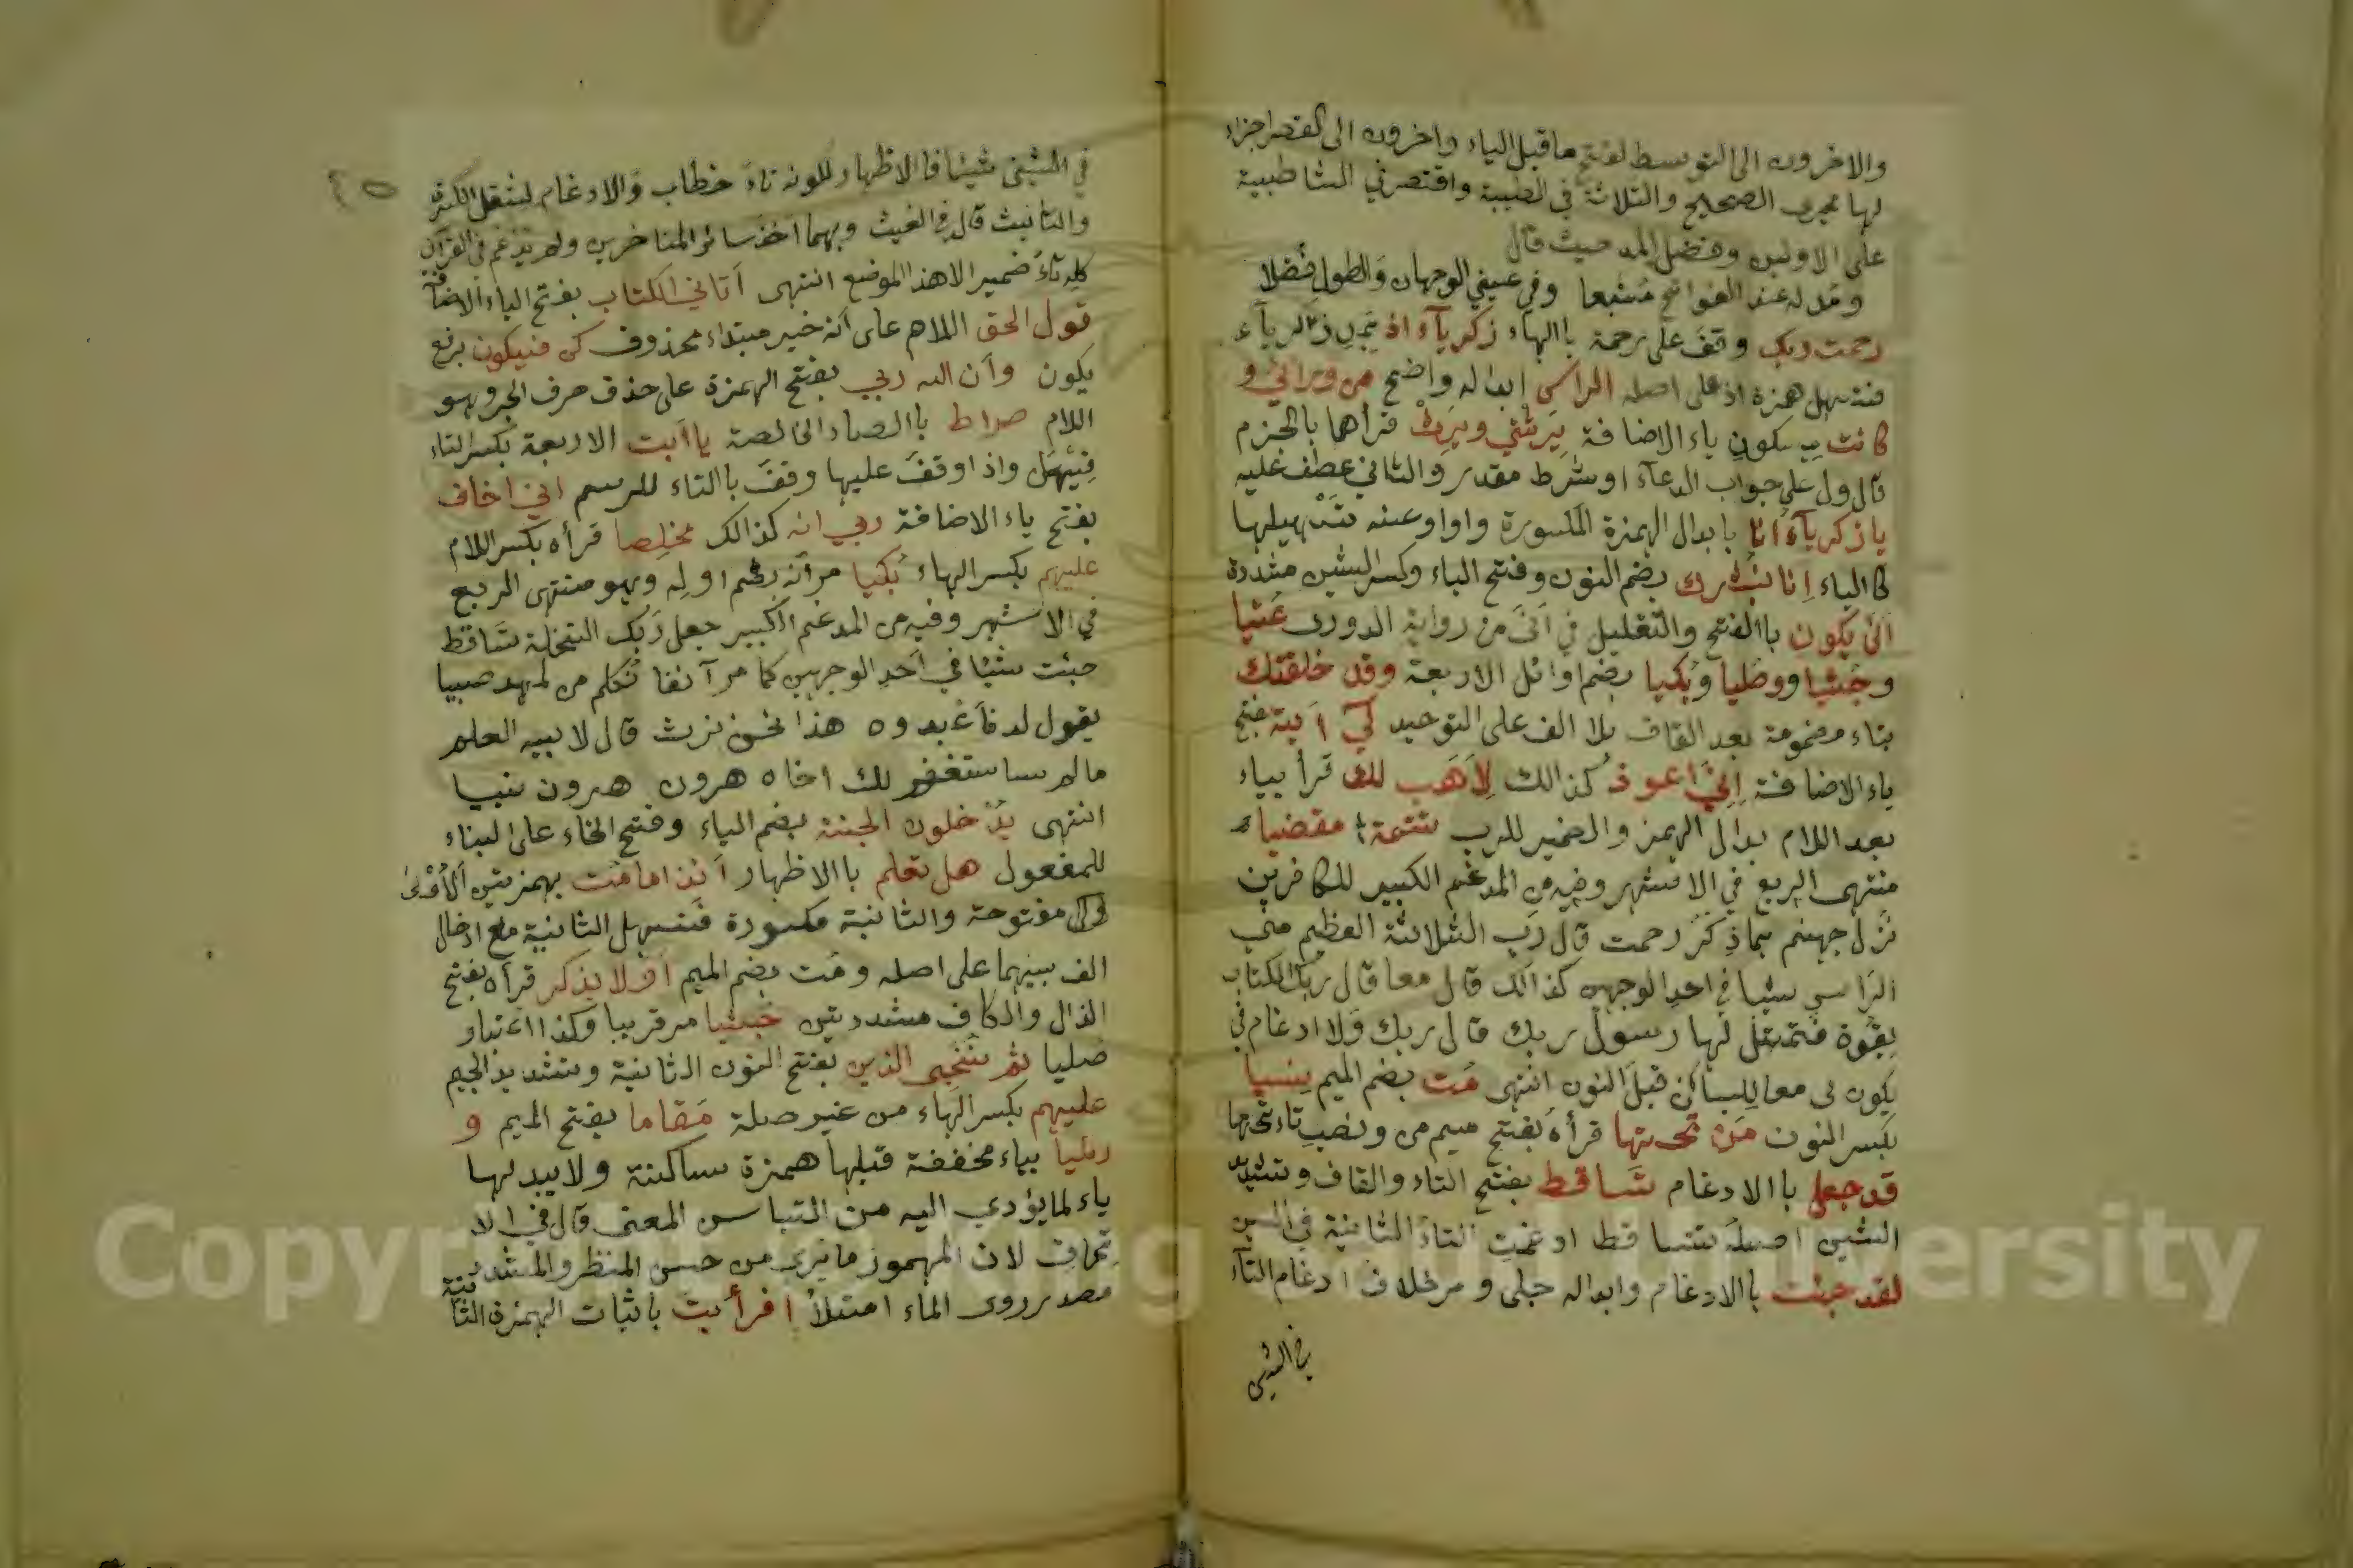 والاخرون الى التوسط لفتح ماقبل الياء واخرون الى القصر اجراء
لها مجرى الصحيح والثلاثة في الطيبة واقتصر في الشاطبية
على الاولين وفضل المد حيث قال
ومد له عند الفواتح مشبعا وفي عين الوجهان والطول فضلا
رحمت ربك وقف على رحمة باالهاء زكرياء اذ
فتسهل همزة اذ على اصله الراس ابداله واضح من ورائي و
كانت بسكون ياء الاضافة يرثني ويرث قرأها بالجزم
فالاول على جواب الدعاء او شرط مقدر والثاني عطف عليه
يا زكرياء انا بابدال الهمزة المكسورة واوا وعنه تسهيلها
كالياء انا نبشرك بضم النون وفتح الباء وكسر الشين مشددة
انى يكون باالفتح والتقليل في انى من رواية الدورى عتيا
وجثيا وصليا وبكيا بضم اوائل الاربعة وقد خلقتك
بتاء مضمومة بعد القاف بلا الف على التوحيد لي آية بفتح
ياء الاضافة اني اعوذ كذالك لاهب لك قرأ بياء
بعد اللام بدال الهمز والضمير للرب تتمة مقضيا
منتهى الربع في الاشهر وفيه من المدغم الكبير للكافرين
نزل جهنم بما ذكر رحمت قال رب الثلاثة العظم مني
الراس شيبا في احد الوجهين كذالك قال معا قال ربك الكتاب
بقوة فتمثل لها رسول ربك قال ربك ولا ادغام في
يكون لي معا للساكن قبل النون انتهى مت بضم الميم نسيا
بكسر النون من تحتها قرأه بفتح ميم من ونصب تاء تحتها
قد جعل باالادغام تساقط بفتح التاء والقاف وتشديد
السين اصله تتساقط ادغمت التاء الثانية في السين
لقد جئت باالادغام وابداله جلى ومر خلاف ادغام التاء
في الشين
في الشين شيئا فالاظهار لكونه تاء خطاب والادغام لثقل الكسرة
والتانيث قاله في الغيث وبهما اخذ سائر المتاخرين ولم يدغم في القرآن
كله تاء ضمير الا هذا الموضع انتهى آتاني الكتاب بفتح الياء الاضافة
قول الحق اللام على انه خبر مبتداء محذوف كن فيكون برفع
يكون وأن الله ربي بفتح الهمزة على حذف حرف الجر وهو
اللام صراط باالصاد الخالصة يا ابت الاربعة بكسر التاء
فيهن واذا وقف عليها وقف باالتاء للرسم اني اخاف
بفتح ياء الاضافة ربي انه كذالك مخلصا قرأه بكسر اللام
عليهم بكسر الهاء بكيا مر أنه بضم اوله وهو منتهى الربع
في الاشهر وفيه من المدغم الكبير جعل ربك النخلة تساقط
جئت شيئا في احد الوجهين كما مر آنفا نكلم من المهد صبيا
يقول له فاعبدوه هذا نحن نرث قال لابيه العلم
مالم ساستغفر لك اخاه هرون هرون نبيا
انتهى يدخلون الجنة بضم الياء وفتح الخاء على البناء
للمفعول هل تعلم باالاظهار أئذا مامت بهمزتين الأولى
مفتوحة والثانية مكسورة فتسهل الثانية مع ادخال
الف بينهما على اصله ومت بضم الميم أولا يذكر قرأه بفتح
الذال والكاف مشددتين جثيا مر قريبا وكذا عتيا و
صليا ثم ننجى الذين بفتح النون الثانية وتشديد الجيم
عليهم بكسر الهاء من غير صلة مقاما بفتح الميم و
رئيا بياء مخففة قبلها همزة ساكنة ولا يبدلها
ياء لما يؤدي اليه من التباس المعنى قال في الا
تحاف لان المهموز ما يرى من حسن المنظر والمشدد
مصدر روى الماء امتلأ افرأيت باثبات الهمزة الثانية
Copyright © King Saud University